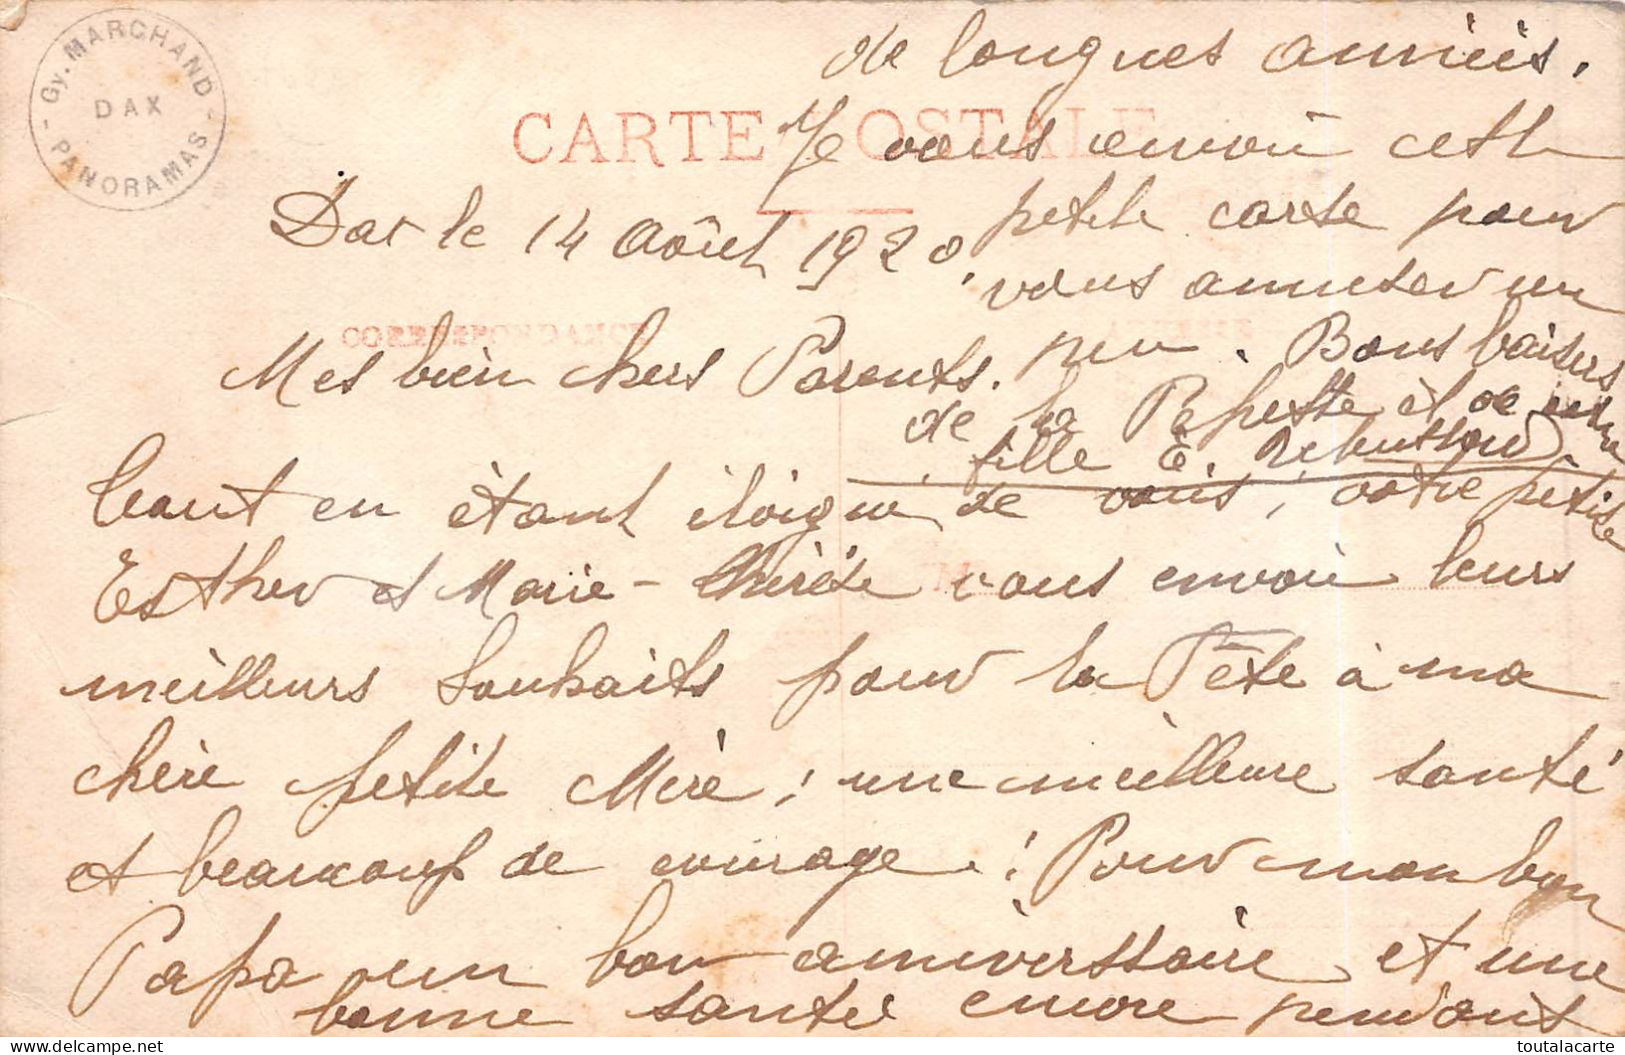 Gy. MARCHAND
DAX
PANORAMAS
CARTE POSTALE
CORRESPONDANCE
Dax le 14 Août 1920.
Mes bien chers Parents.
tout en étant éloigné de vous, votre petite
Esther et Marie-Thérèse vous envoie leurs
meilleurs souhaits pour la Fête à ma
chère petite Mère; une meilleure santé
et beaucoup de courage! Pour mon bon
Papa un bon anniverssaire et une
bonne santée encore pendant
de longues années.
Je vous envoie cette
petite carte pour
vous amuser un
peu. Bons baisers
de la Pepette et de votre
fille E.
toutalacarte